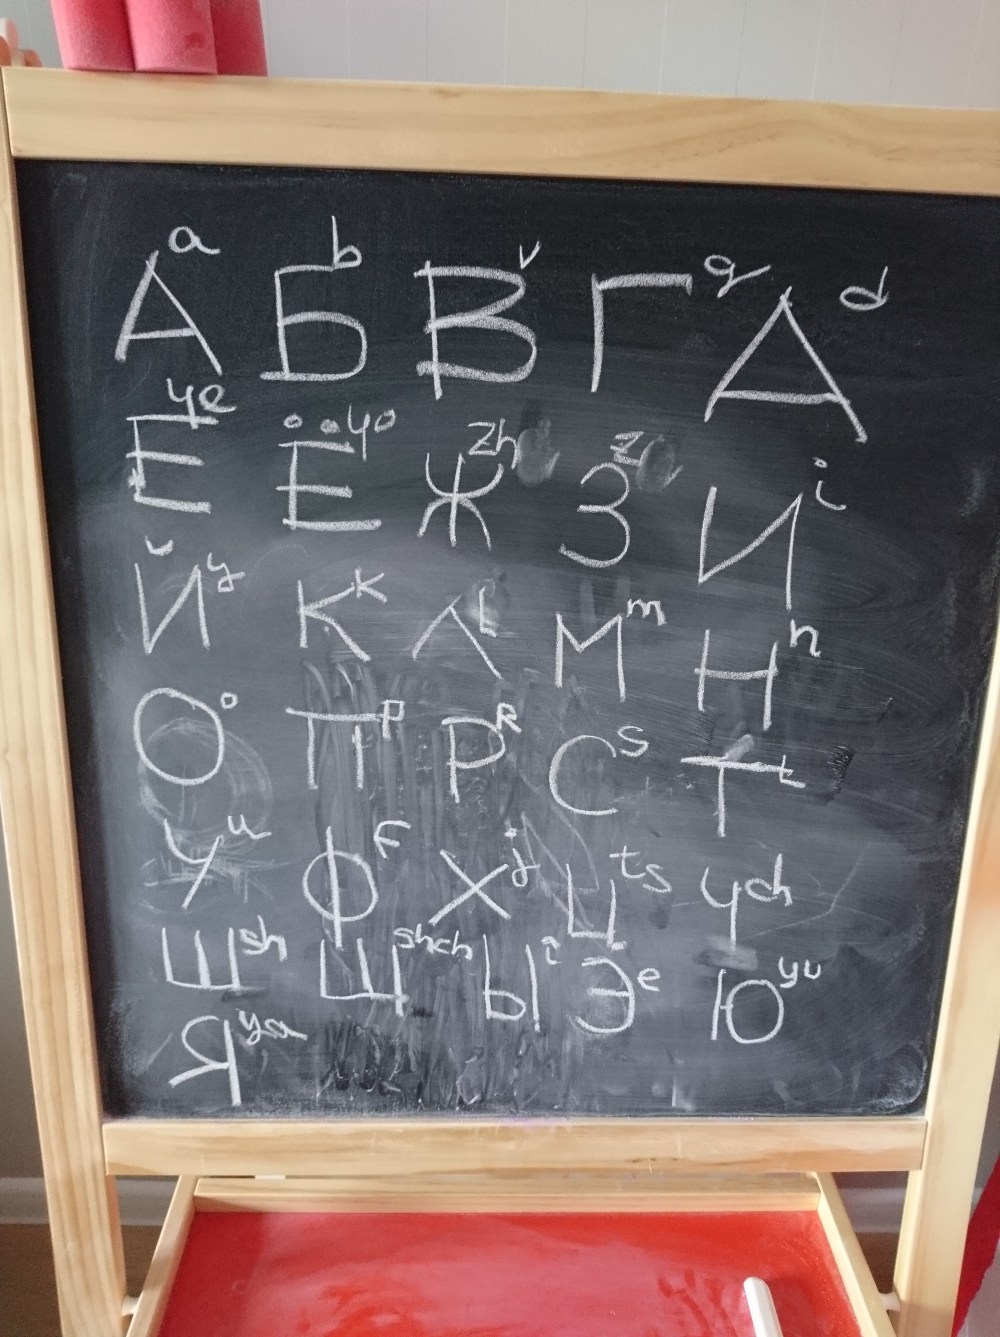 А a Б b В v Г g Д d
Е ye Ё yo Ж zh З z И i
Й y К k Л L М m Н n
О o П p Р R С s Т t
У u Ф F Х j Ц ts Ч ch
Ш sh Щ shch Ы i Э e Ю yu
Я ya